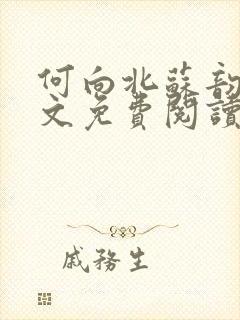 何向北蘇韵
文免費閱讀
戚務生